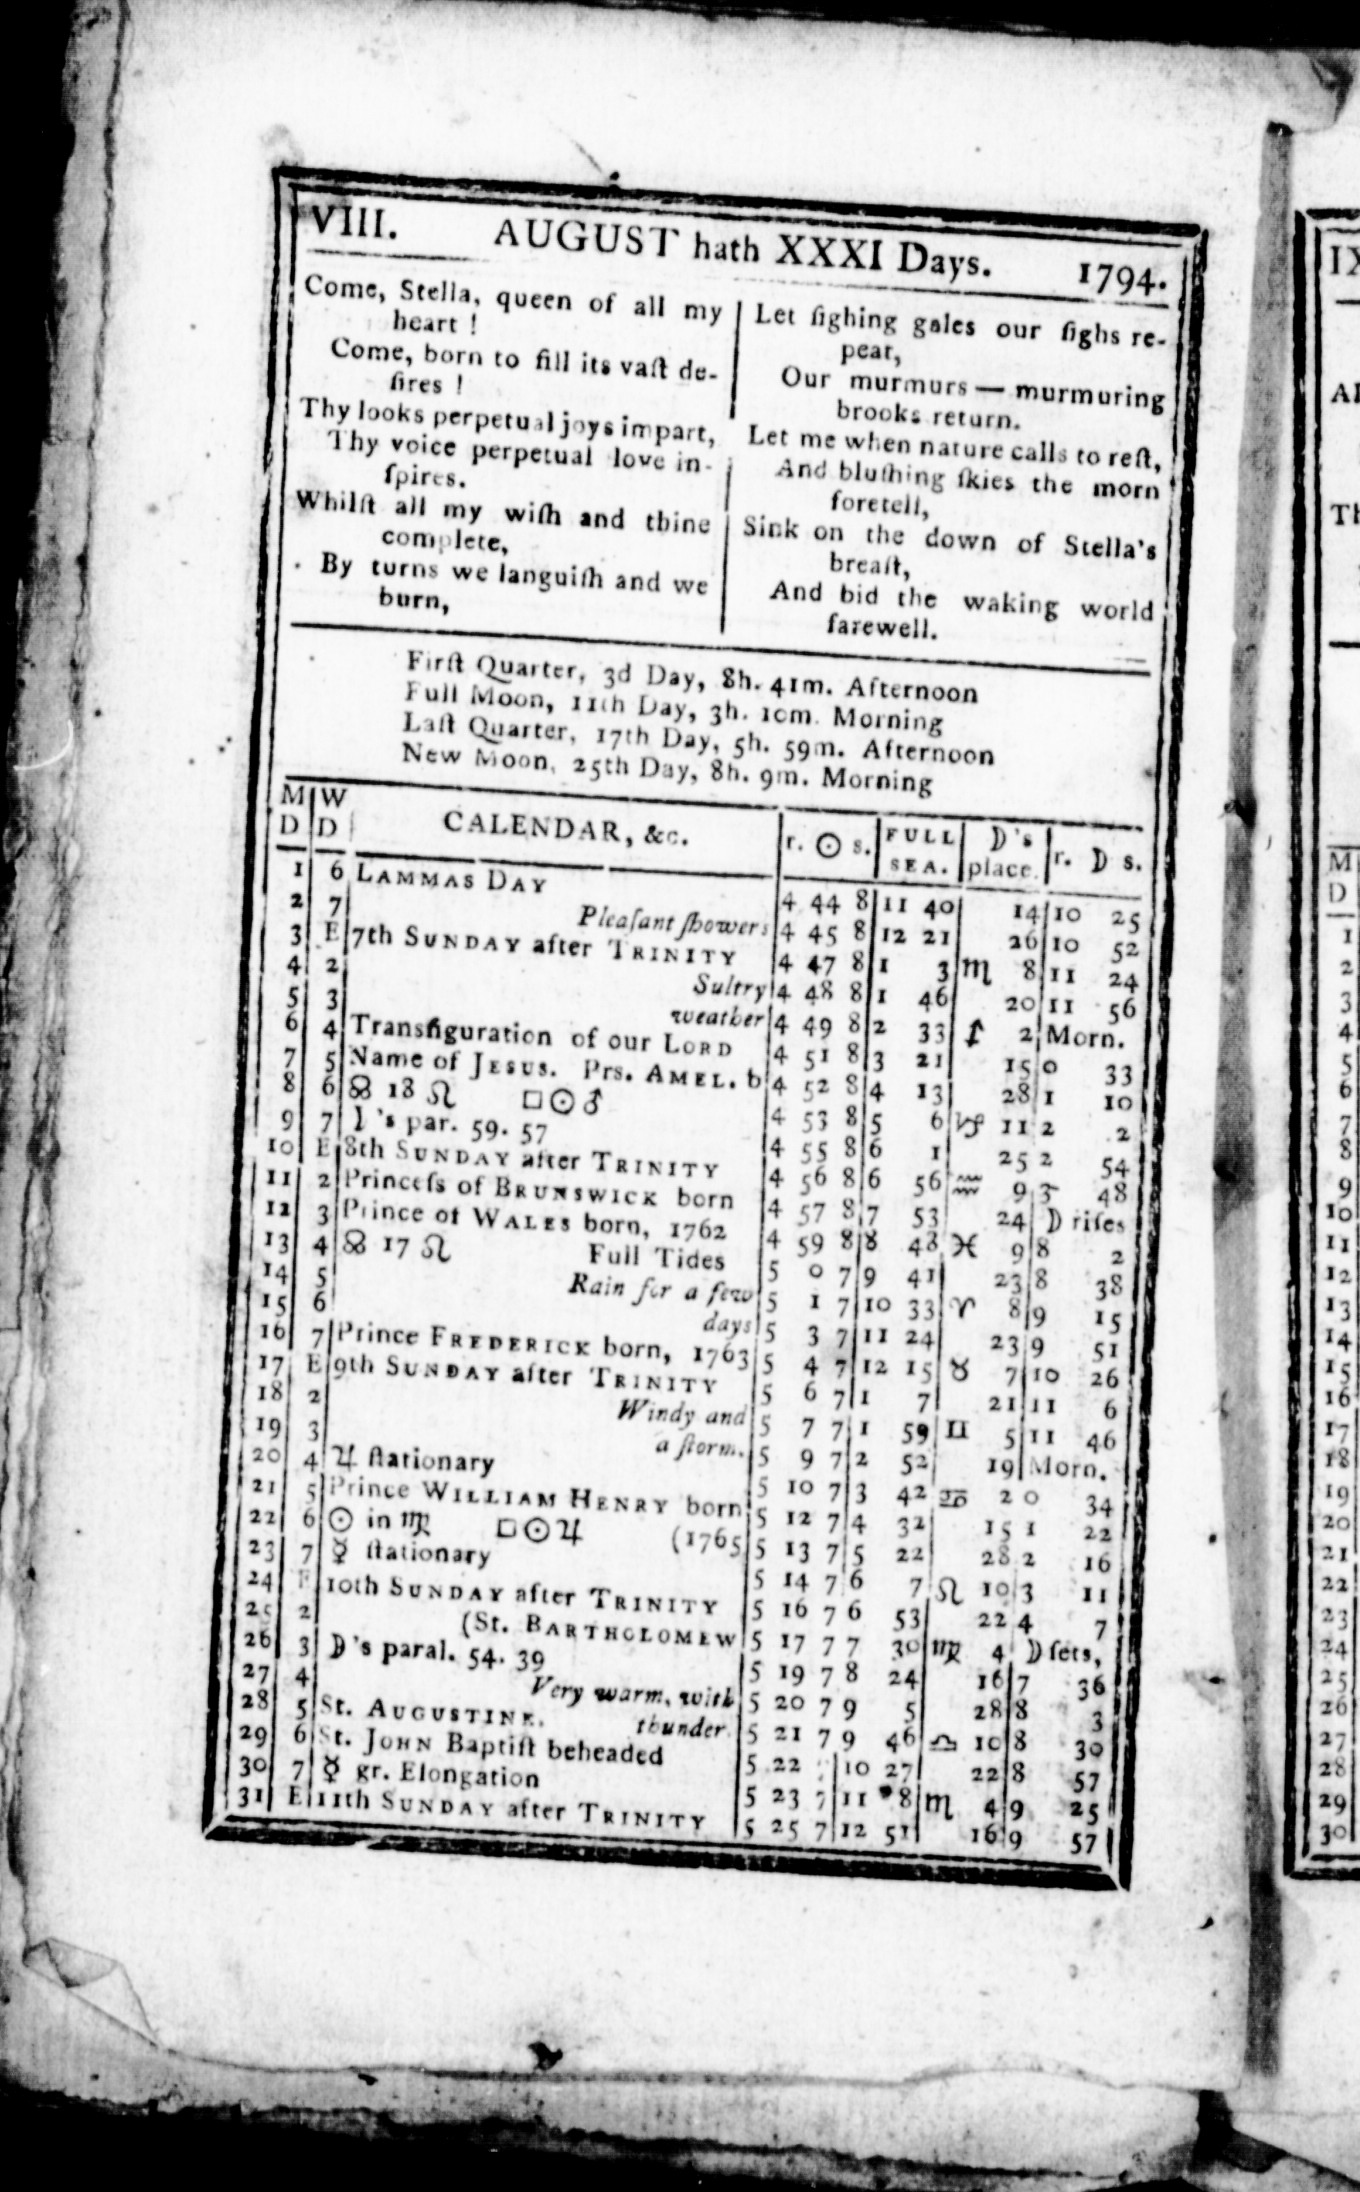 VIII. AUGUST hath XXXI Days. 1794.
Come, Stella, queen of all my
heart !
Come, born to fill its vaſt de-
ſires !
Thy looks perpetual joys impart,
Thy voice perpetual love in-
ſpires.
Whilſt all my wiſh and thine
complete,
By turns we languiſh and we
burn,
Let ſighing gales our ſighs re-
peat,
Our murmurs — murmuring
brooks return.
Let me when nature calls to reſt,
And bluſhing ſkies the morn
foretell,
Sink on the down of Stella's
breaſt,
And bid the waking world
farewell.
Firſt Quarter, 3d Day, 8h. 41m. Afternoon
Full Moon, 11th Day, 3h. 10m. Morning
Laſt Quarter, 17th Day, 5h. 59m. Afternoon
New Moon, 25th Day, 8h. 9m. Morning
M D W D CALENDAR, &c. r. ☉ s. FULL SEA. ☽'s place. r. ☽ s.
1 6 LAMMAS DAY 4 44 8 11 40 14 10 25
2 7 Pleaſant ſhowers 4 45 8 12 21 26 10 52
3 E 7th SUNDAY after TRINITY 4 47 8 1 3 ♏ 8 11 24
4 2 Sultry 4 48 8 1 46 20 11 56
5 3 weather 4 49 8 2 33 ♐ 2 Morn.
6 4 Transfiguration of our LORD 4 51 8 3 21 15 0 33
7 5 Name of JESUS. Prs. AMEL. b 4 52 8 4 13 28 1 10
8 6 ☊ 18 ♌ □ ☉ ♂ 4 53 8 5 6 ♑ 11 2 2
9 7 ☽'s par. 59. 57 4 55 8 6 1 25 2 54
10 E 8th SUNDAY after TRINITY 4 56 8 6 56 ♒ 9 3 48
11 2 Princeſs of BRUNSWICK born 4 57 8 7 53 24 ☽ riſes
12 3 Prince of WALES born, 1762 4 59 8 8 48 ♓ 9 8 2
13 4 ☊ 17 ♌ Full Tides 5 0 7 9 41 23 8 38
14 5 Rain for a few 5 1 7 10 33 ♈ 8 9 15
15 6 days 5 3 7 11 24 23 9 51
16 7 Prince FREDERICK born, 1763 5 4 7 12 15 ♉ 7 10 26
17 E 9th SUNDAY after TRINITY 5 6 7 1 7 21 11 6
18 2 Windy and 5 7 7 1 59 ♊ 5 11 46
19 3 a ſtorm. 5 9 7 2 52 19 Morn.
20 4 ♃ ſtationary 5 10 7 3 42 ♋ 2 0 34
21 5 Prince WILLIAM HENRY born 5 12 7 4 32 15 1 22
22 6 ☉ in ♍ □ ☉ ♃ (1765 5 13 7 5 22 28 2 16
23 7 ☿ ſtationary 5 14 7 6 7 ♌ 10 3 11
24 E 10th SUNDAY after TRINITY 5 16 7 6 53 22 4 7
25 2 (St. BARTHOLOMEW 5 17 7 7 30 ♍ 4 ☽ ſets,
26 3 ☽'s paral. 54. 39 5 19 7 8 24 16 7 36
27 4 Very warm, with 5 20 7 9 5 28 8 3
28 5 St. AUGUSTINE. thunder. 5 21 7 9 46 ♎ 10 8 30
29 6 St. JOHN Baptiſt beheaded 5 22 10 27 22 8 57
30 7 ☿ gr. Elongation 5 23 7 11 8 ♏ 4 9 25
31 E 11th SUNDAY after TRINITY 5 25 7 12 51 16 9 57
IX
M
D
1
2
3
4
5
6
7
8
9
10
11
12
13
14
15
16
17
18
19
20
21
22
23
24
25
26
27
28
29
30